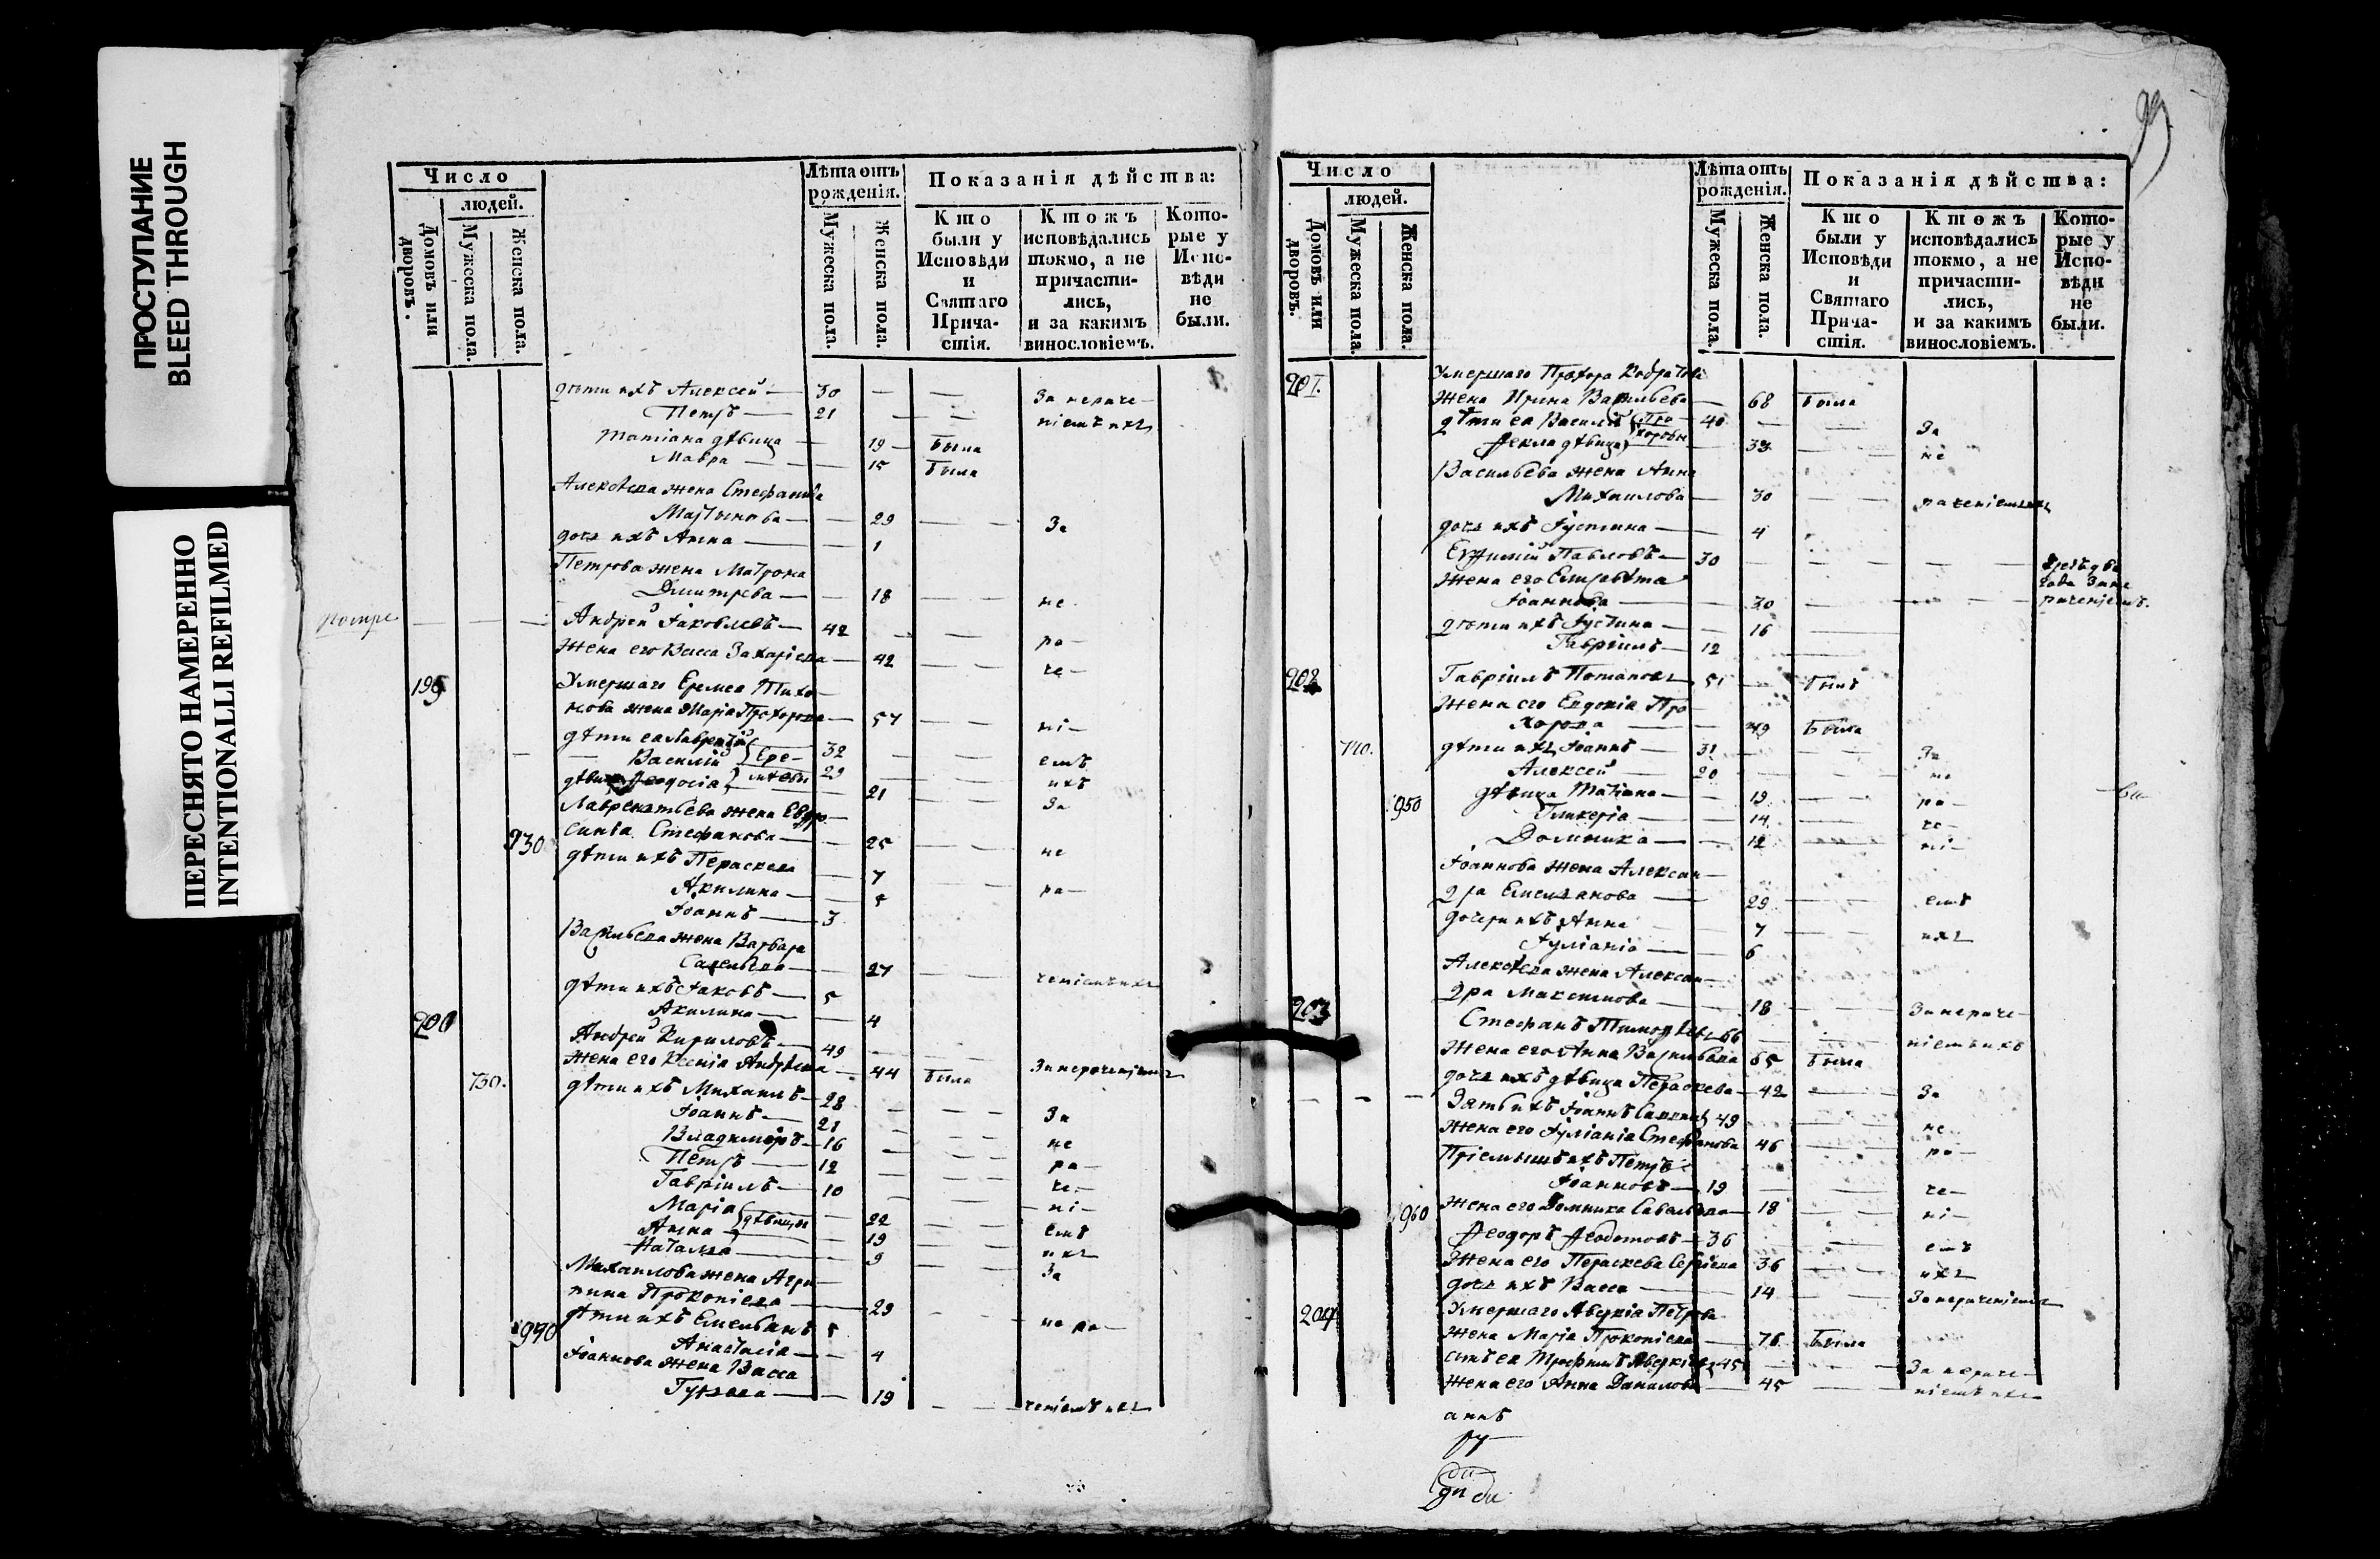 ПРОСТУПАНИЕ
BLEED THROUGH
ПЕРЕСНЯТО НАМЕРЕННО
INTENTIONALLI REFILMED
Число
людей.
Домовъ или дворовъ.
Мужеска пола.
Женска пола.
Лѣта отъ рожденія.
Мужеска пола.
Женска пола.
Показанія дѣйства:
Кто были у Исповѣди и Святаго Причастія.
Ктожъ исповѣдались токмо, а не причастились, и за какимъ винословіемъ.
Которые у Исповѣди не были.
дѣти ихъ Алексей 30 За нераче-
Петръ 21 ніемъ ихъ
Татіана дѣвица 19 была
Мавра 15 была
Алексѣева жена Стефанида
29 За
дочь ихъ Анна 1
Петрова жена Матрона
Дмитрева 18 не
Андрей Іаковлевъ 42 ра-
жена его Васса Захаріева 42 че-
199 Умершаго Еремеа Тихо-
нова жена Маріа Прохорова 57 ні-
дѣти еа Лаврентій 32 емъ
Василій Ере- 29 ихъ
Ѳеодосіа мѣевы 21 За
Лаврентьева жена Евфро-
930 синіа Стефанова 25 не
дѣти ихъ Параскева 7 ра-
Акилина 5
Іоаннъ 3
Васильева жена Варвара
Савельева 27 ченіемъ ихъ
дѣти ихъ Іаковъ 5
Акилина 4
200 Андрей Кириловъ 49
жена его Ксеніа Андреева 44 была За нераченіемъ
730. дѣти ихъ Михаилъ 28
Іоаннъ 21 За
Владимиръ 16 не
Петръ 12 ра-
Гавріилъ 10 че-
Маріа ні-
Анна дѣвицы 22 емъ
Наталіа 19 ихъ
9 За
Михаилова жена Агри-
пина Прокопіева 29
дѣти ихъ Емельянъ 5 не ра-
940 Анастасіа 4
Іоаннова жена Васса
19 ченіемъ ихъ
Число
людей.
Домовъ или дворовъ.
Мужеска пола.
Женска пола.
Лѣта отъ рожденія.
Мужеска пола.
Женска пола.
Показанія дѣйства:
Кто были у Исповѣди и Святаго Причастія.
Ктожъ исповѣдались токмо, а не причастились, и за какимъ винословіемъ.
Которые у Исповѣди не были.
201 Умершаго Прохора
жена Ирина Васильева 68 была
дѣти еа Василій Про- 40 За
Ѳекла дѣвица хоровы 33 не
Васильева жена Анна
Михаилова 30 раченіемъ ихъ
дочь ихъ Іустина 4
Евфимій Павловъ 30
жена его Елисавѣта
Іоаннова 30 раченіемъ.
дѣти ихъ Іустина 16
Гавріилъ 12
202 Гавріилъ Потаповъ 51 былъ
жена его Евдокіа Про-
хорова 49 была
740. дѣти ихъ Іоаннъ 31 За
Алексей 20 не
950 дѣвица Татіана 19 ра-
Гликеріа 14 че-
Домника 12 ні-
Іоаннова жена Алексан-
дра Емельянова 29 емъ
дочери ихъ Анна 7 ихъ
Іуліаніа 6
Алексѣева жена Алексан-
дра Максимова 18 За нераче-
203 Стефанъ Тимоѳѣевъ 66 ніемъ ихъ
жена его Анна Васильева 65 была
дочь ихъ дѣвица Параскева 42 За
Зять ихъ Іоаннъ 49 не
жена его Іуліаніа Стефанова 46 ра-
Пріемышъ ихъ Петръ
Іоанновъ 19 че-
960 жена его Домника Савельева 18 ні-
Ѳеодоръ Ѳеодотовъ 36 емъ
жена его Параскева Сергіева 36 ихъ
дочь ихъ Васса 14 За нераченіемъ
204 Умершаго Аверкіа Петрова
жена Маріа Прокопіева 76 была
сынъ еа Трофимъ Аверкіевъ 45 За нераче-
жена его Анна Данилова 45 ніемъ ихъ